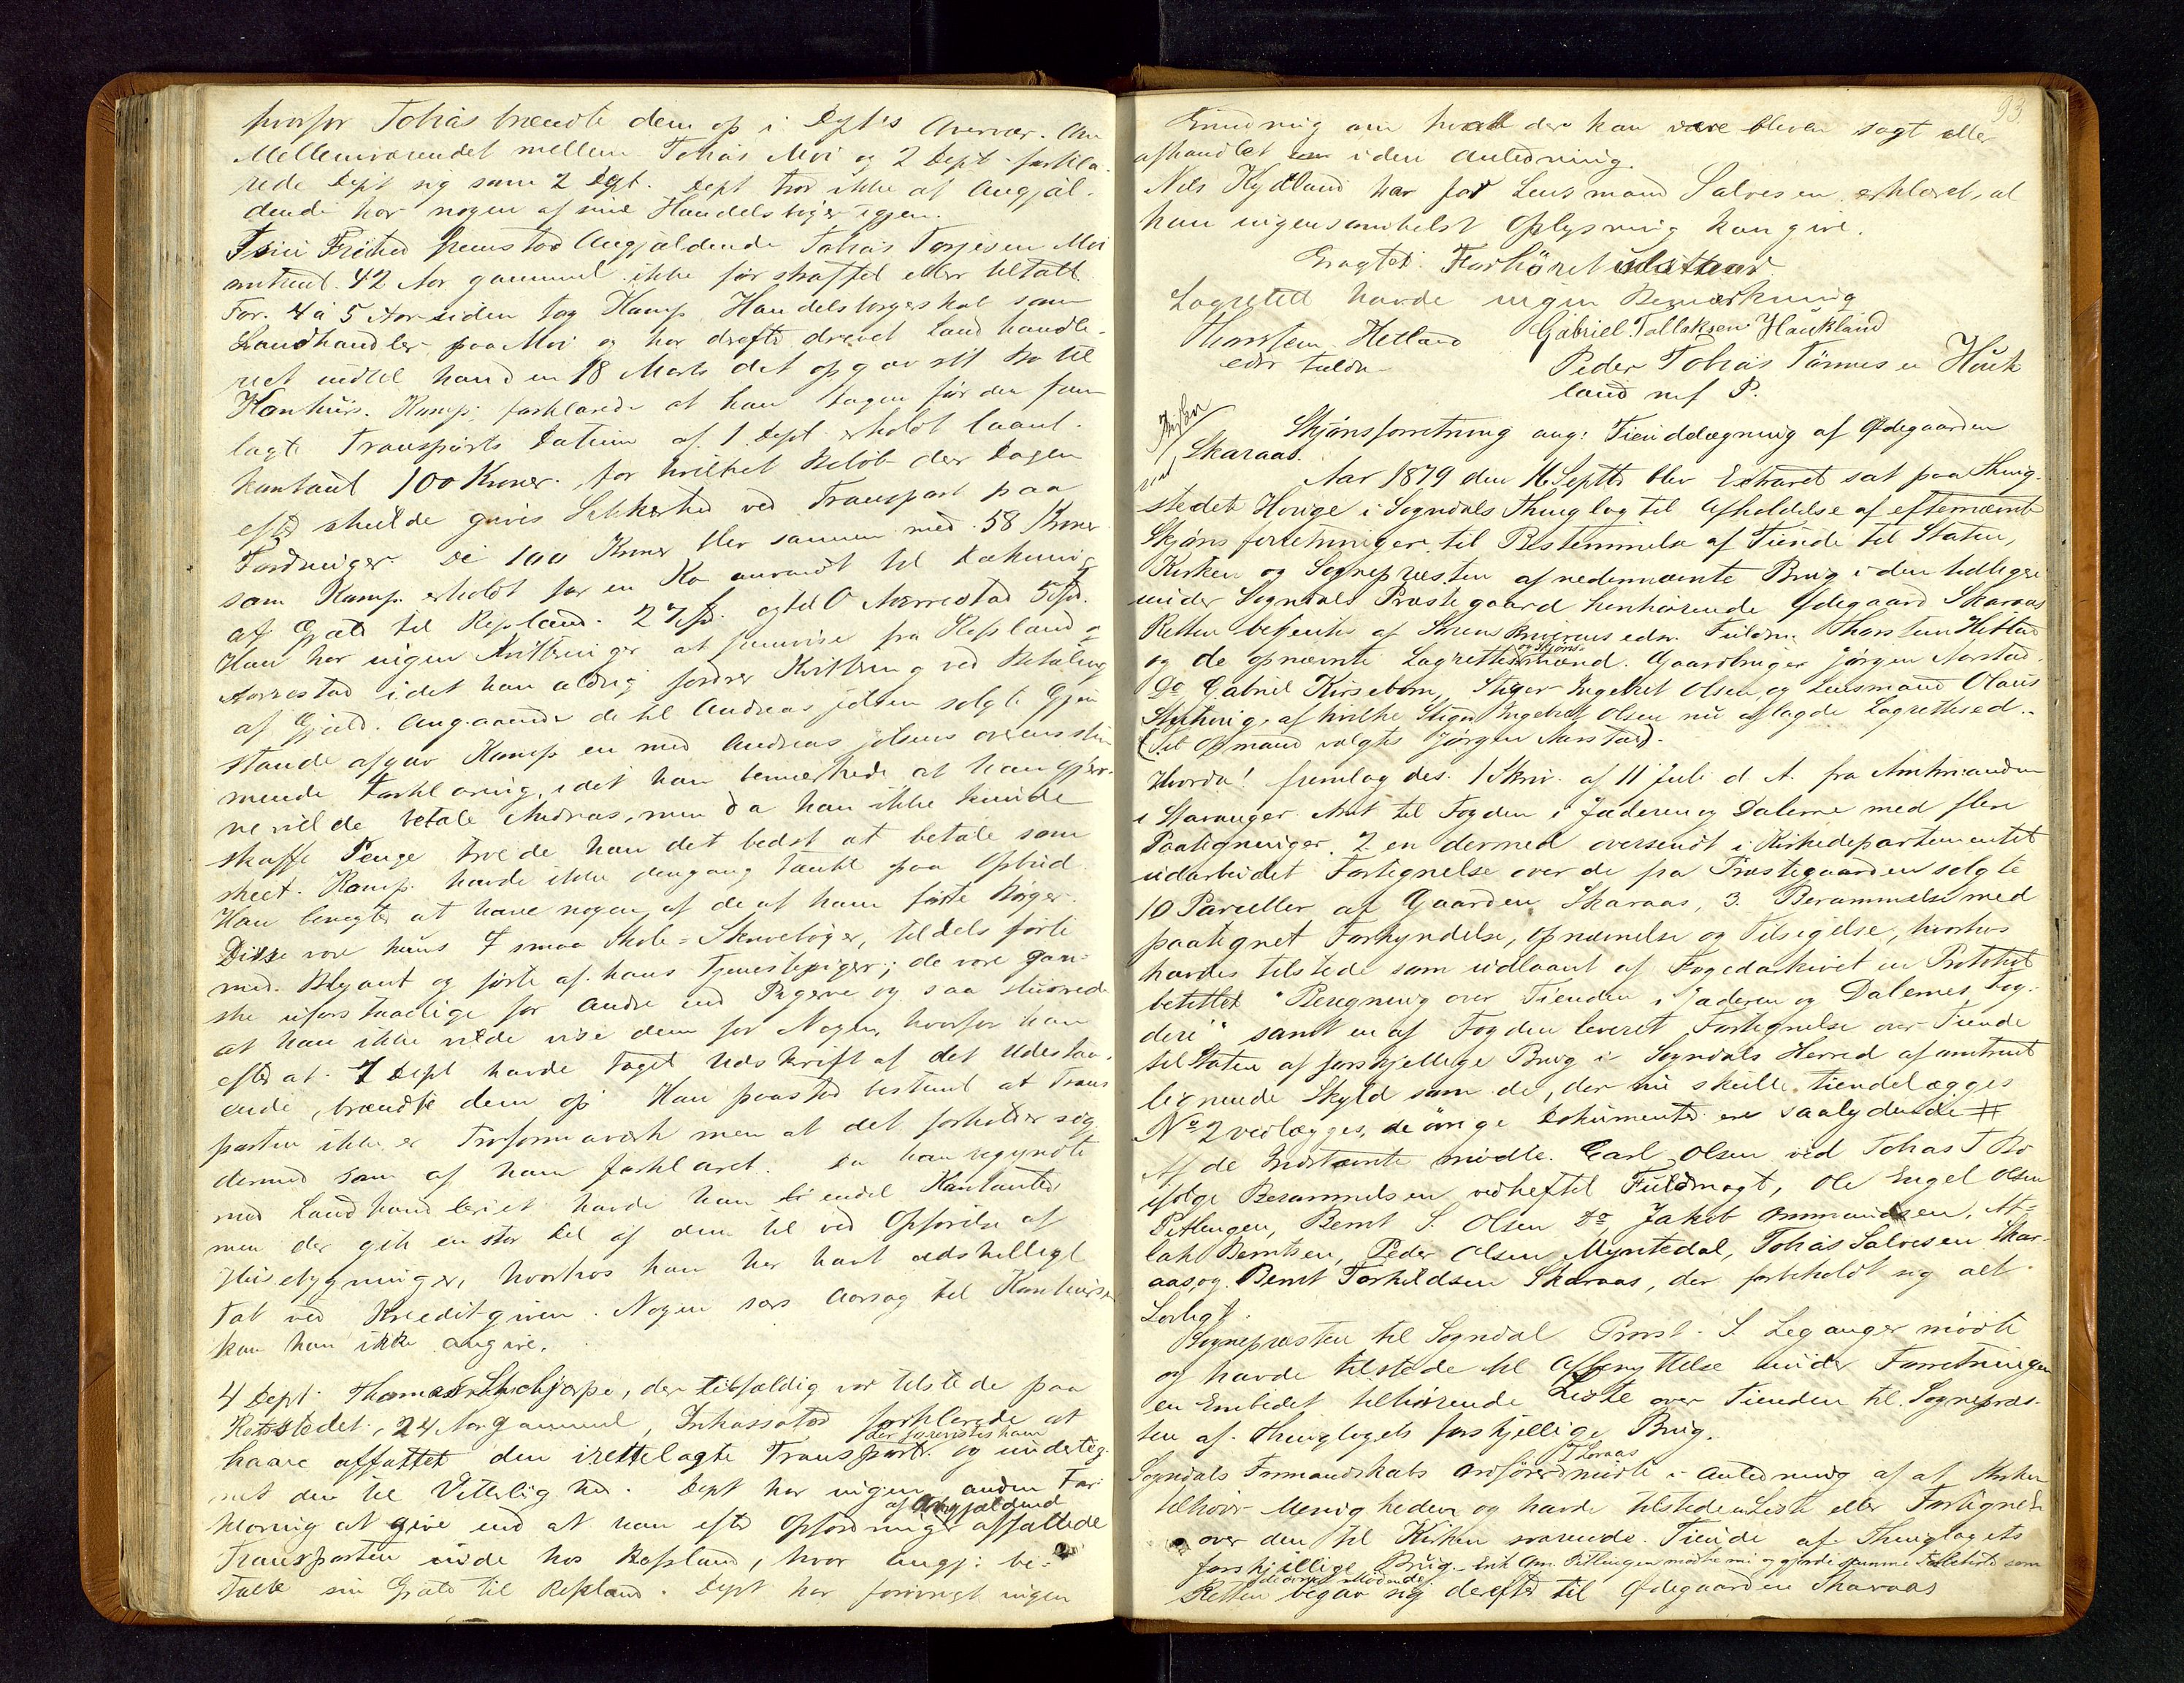 hvorfor Tobias brændte dem op i Dept's Overvær. Om
Mellemværendet mellem Tobias Moi og 2 Dept forkla-
rede Dept sig som 2 Dept. Dept tror ikke at Angjæl-
dende har nogen af sine Handelsbøger igjen.
Fri i Frihed fremstod Angjældende Tobias Torjesen Moi
omtrent 42 Aar gammel ikke før straffet eller tiltalt.
For 4 à 5 Aar siden tog Komp. Handelsborgerskab som
Landhandler paa Moi og har drevet Landhandle-
riet indtil han den 18 Marts det opgav sit Bo til
Konkurs. Komp. forklarede at han Dagen før den frem
lagte Transports Datum af 1 Dept erholdt laant
kontant 100 Kroner for hvilket Beløb der Dagen
efter skulde gives Sikkerhed ved Transport paa
Fordringer. De 100 Kroner blev sammen med 58 Kroner
som Komp. erholdt for en Ko anvendt til Dækning
af Gjæld til Repsland 27 Spd. og til O Aarrestad 5 Spd.
Han har ingen Kvitteringer at fremvise fra Repsland og
Aarrestad idet han aldrig fordrer Kvittering ved Betaling
af Gjæld. Angaaende de til Andreas Jolsen solgte Gjen
stande afgav Komp en med Andreas Jolsens overensstem
mende Forklaring, idet han bemærkede at han gjer-
ne vilde betale Andreas, men da han ikke kunde
skaffe Penge troede han det bedst at betale som
skeet. Komp. havde ikke dengang tænkt paa Opbud.
Han benegter at have nogen af de af ham førte Bøger.
Disse vare kuns 7 smaa Skole-Skrivebøger, tildels førte
med Blyant og førte af hans Tjenestepiger; de vare gan-
ske uforstaaelige for Andre end Pigerne og saa
at han ikke vilde vise dem for Nogen, hvorfor han
efter at 1 Dept havde taget Udskrift af det Udestaa-
ende, brændte dem op. Han paastod bestemt at Trans
porten ikke er Proformaværk men at det forholder sig
dermed som af ham forklaret. Da han begyndte
med Landhandleriet havde han endel Kontanter
men der gik en stor Del af dem til ved Opførelse af
Husebygninger, hvorhos han har havt adskilligt
Tab ved Kreditgiven. Nogen særs Aarsag til Konkursen
kan han ikke angive.
4 Dept. Thomas, der tilfældig var tilstede paa
Retsstedet, 24 Aar gammel, Inkassator forklarede at
der forevistes ham
have affattet den irettelagte Transport og underteg-
net den til Vitterlighed. Dept har ingen anden For
af Angjældende
klaring at give end at han efter Opfordring affattede
Transporten inde hos Repsland, hvor Angj: be-
talte sin Gjæld til Repsland. Dept har forøvrigt ingen
93.
Erindring om hvad der kan være bleven sagt eller
afhandlet i den Anledning.
Nils Hydland har for Lensmand Salvesen erklæret, at
han ingensomhelst Oplysning kan give.
Eragtet: Forhøret sluttet
Lagretted havde ingen Bemærkning
Thorstein Hetland Gabriel Tollaksen Haukland
edsv Fuldm. Peder Tobias Tönnesen Hauk
land m f P.
Skjønsforretning ang: Tiendelægning af Ødegaarden
Skaraas.
Aar 1879 den 16 Septbr blev Extraret sat paa Thing-
stedet Hovige i Sogndals Thinglag til Afholdelse af efternævnte
Skjønsforretninger til Bestemmelse af Tiende til Staten,
Kirken og Sognepresten af nedennævnte Brug i den tidligere
under Sogndals Præstegaard henhørende Ødegaard Skaraas
Retten betjentes af Sorenskriverens edsv. Fuldm. Thorstein Hetland
og Skjøns-
og de opnævnte Lagrettesmænd. Gaardbruger Jørgen Aarstad.
Do Gabriel Kirsebom, Stiger Ingebret Olsen og Lensmand Olaus
, af hvilke Stiger Ingebret Olsen nu aflagde Lagrettesed.
(Til Opmand valgtes Jørgen Aarstad.
Hvorda! fremlagdes. 1 Skriv. af 11 Juli d A. fra Amtmanden
i Stavanger Amt til Fogden i Jæderen og Dalerne med flere
Paategninger. 2 en dermed oversendt i Kirkedepartementet
udarbeidet Fortegnelse over de fra Præstegaarden solgte
10 Parceller af Gaarden Skaraas, 3. Berammelse med
paategnet Forkyndelse, Opnævnelse og Tilsigelse, hvorhos
havdes tilstede som udlaant af Fogedarkivet en Protokol
betitlet "Beregning over Tienden i Jæderen og Dalernes Fog-
deri" samt en af Fogden leveret Fortegnelse over Tiende
til Staten af forskjellige Brug i Sogndals Herred af omtrent
lignende Skyld som de, der nu skulle tiendelægges
No 2 vedlægges, de øvrige Dokumenter ere saalydende #
Af de Indstævnte mødte. Carl Olsen ved Tobias T Bø
ifølge Berammelsen vedheftet Fuldmagt, Ole Engel Olsen
Pitlingen, Bernt S. Olsen Do, Jakob Ommundsen, At-
lak Berntsen, Peder Olsen Myntedal, Tobias Salvesen Skar-
aas, og Bernt Torkildsen Skaraas, der forbeholdt sig alt
Lovligt.
Sognepresten til Sogndal Provst S. Leganger mødte
og havde tilstede til Afbenyttelse under Forretningen
en Embedet tilhørende Liste over Tienden til Sognepræs-
ten af Thinglagets forskjellige Brug.
T Loraas
Sogndals Formandskabs Ordfører mødte i Anledning af at Kirken
tilhører Menigheden og havde tilstede en Liste eller Fortegnelse
over den til Kirken svarende Tiende af Thinglagets
forskjellige Brug. Erik Om. Pitlingen mødte nu og gjorde samme Forbehold som
de øvrige Mødende.
Retten begav sig derefter til Ødegaarden Skaraas